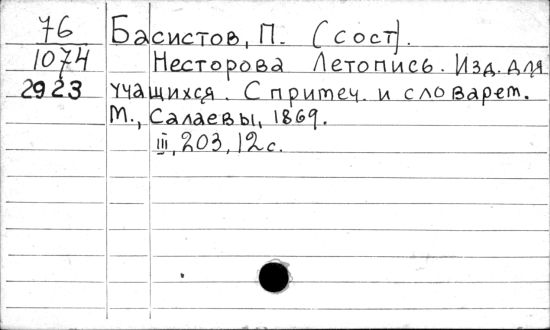 76 Басистов, П. (сост).
1074 Несторова Летопись. Изд. для
2923 учащихся. С примеч. и словарем.
М., Салаевы, 1869.
III, 203, 12 с.